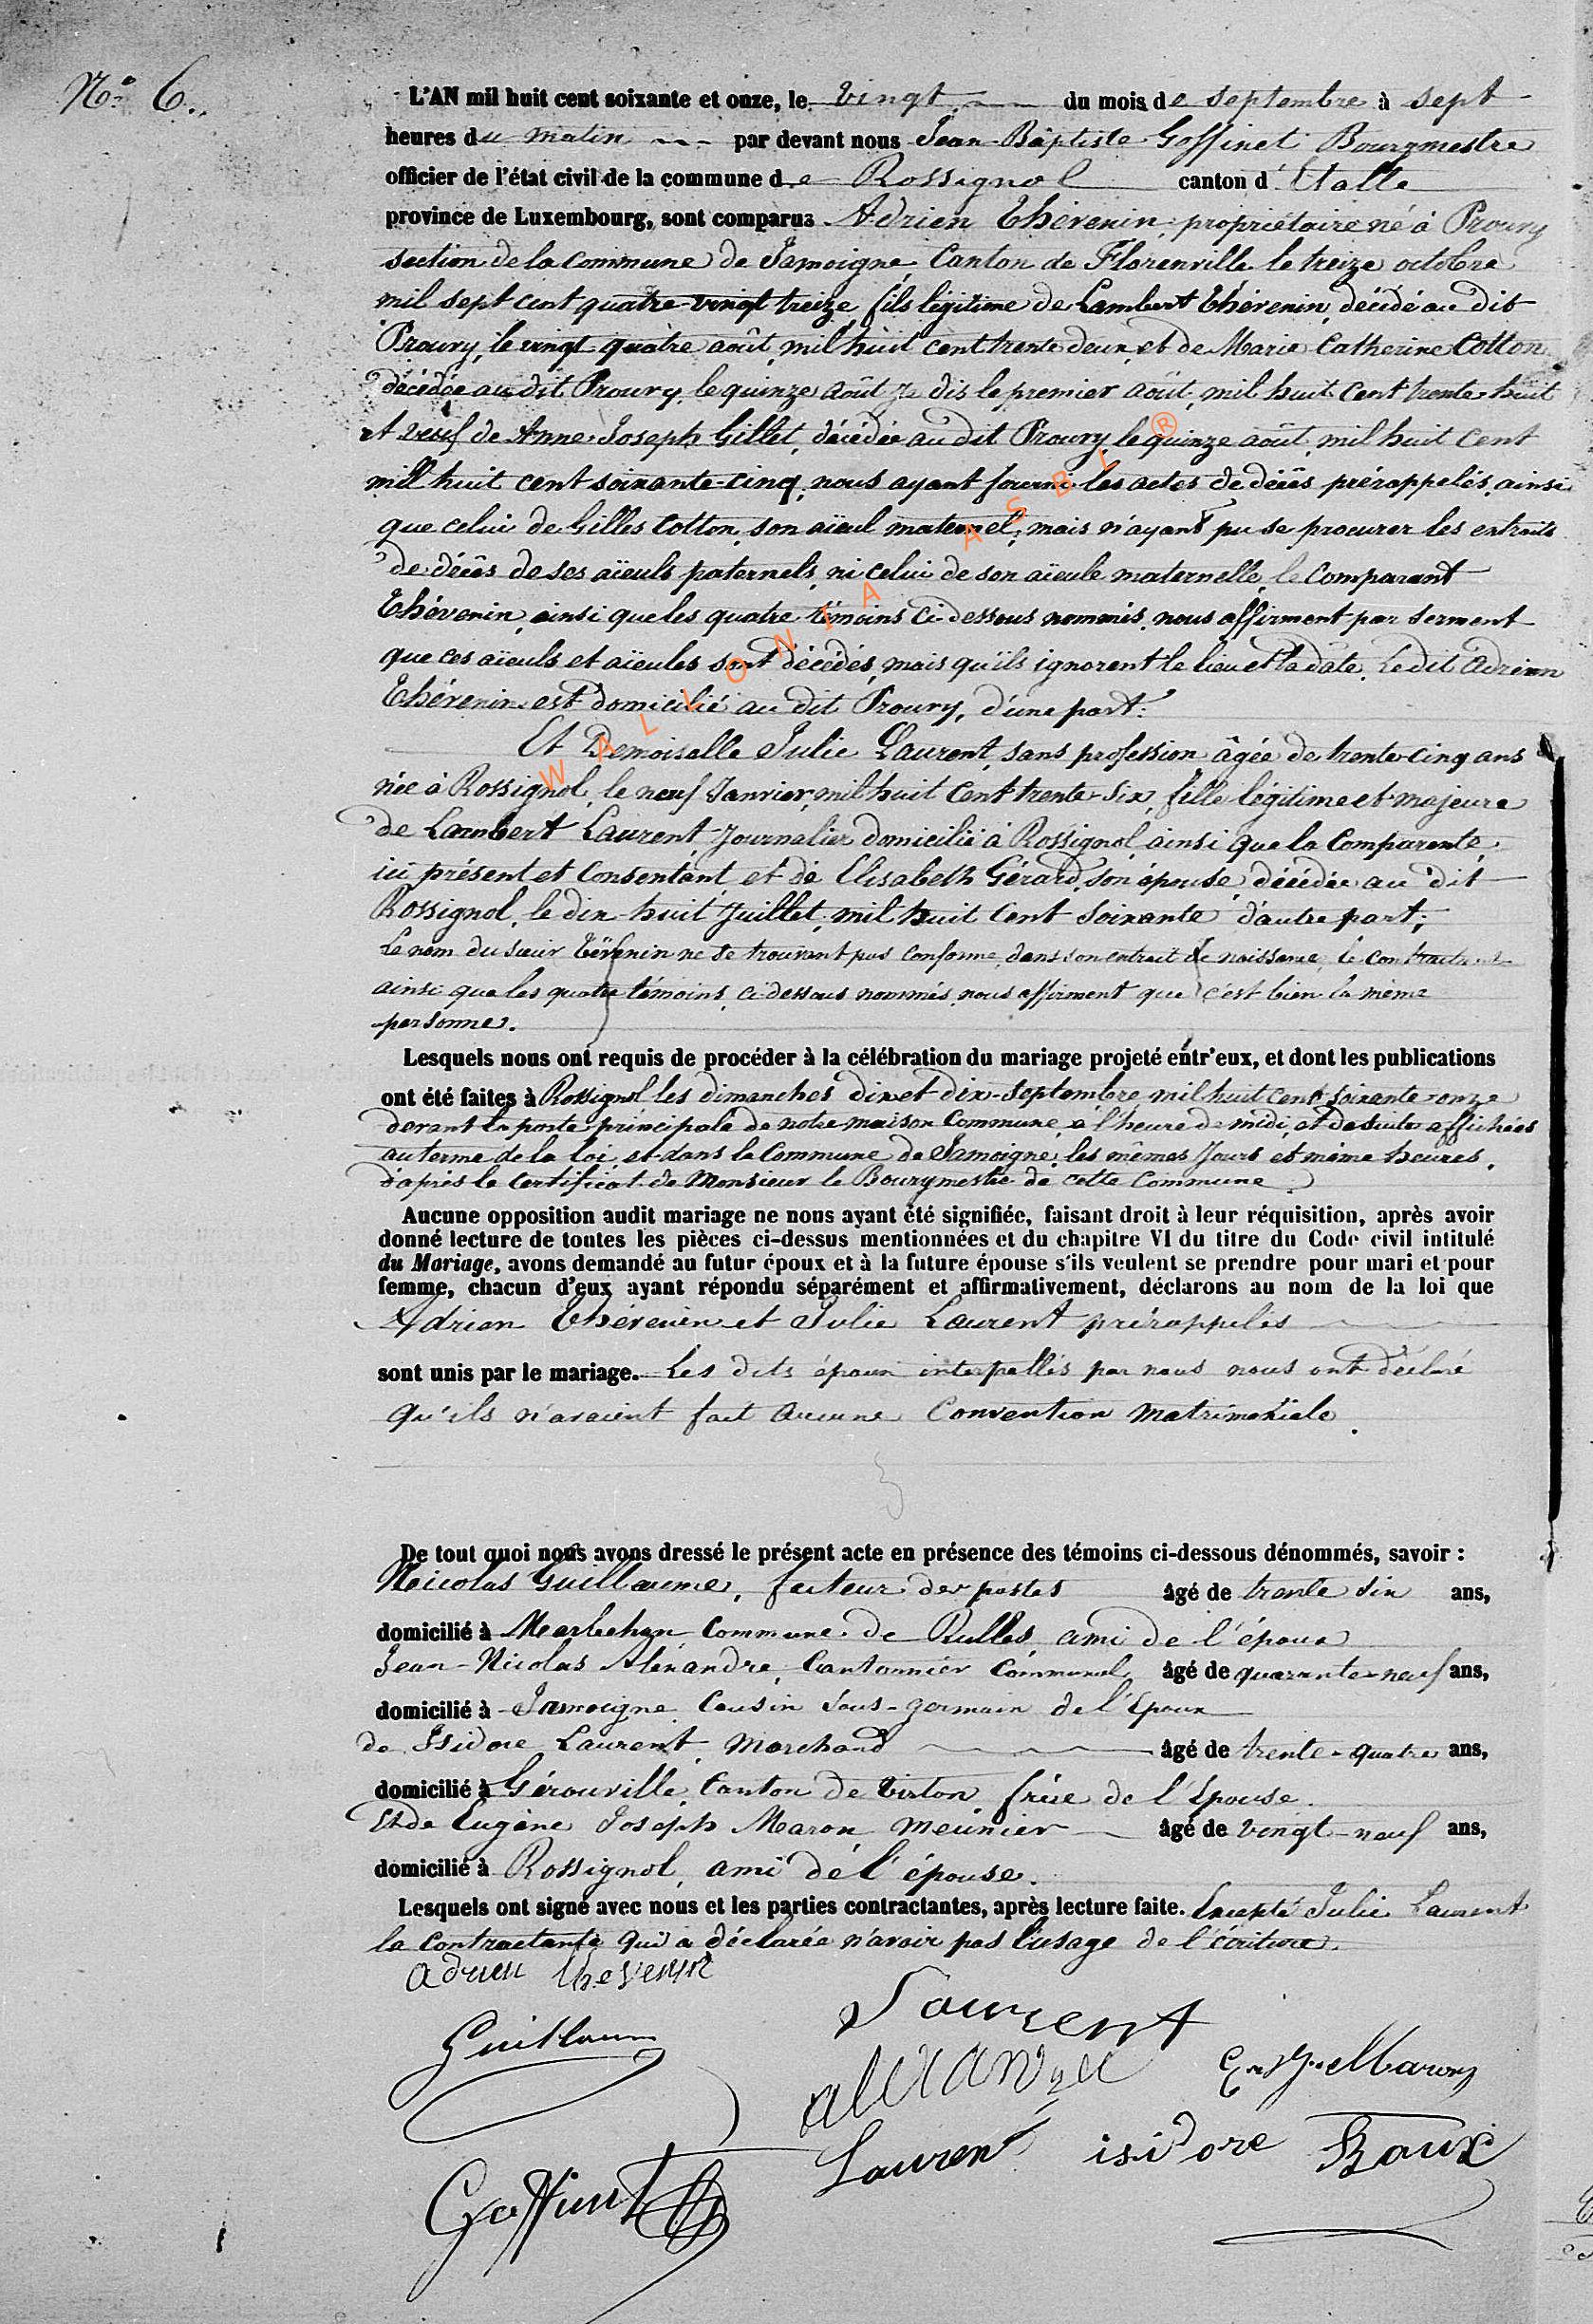 N.° 6.
L'AN mil huit cent soixante et onze, le vingt du mois de septembre à sept
heures du matin par devant nous Jean-Baptiste Goffinet Bourgmestre
officier de l'état civil de la commune de Rossignol canton d'Etalle
province de Luxembourg, sont comparus Adrien Thévenin, propriétaire né à Prouvy
section de la commune de Jamoigne, Canton de Florenville le treize octobre
mil sept cent quatre-vingt treize, fils légitime de Lambert Thévenin, décédé au dit
Prouvy, le vingt-quatre août, mil huit cent trente deux, et de Marie Catherine Cotton
décédée au dit Prouvy, le quinze août je dis le premier août, mil huit cent trente-huit
et veuf de Anne-Joseph Gillet, décédée au dit Prouvy, le quinze août, mil huit cent
mil huit cent soixante-cinq, nous ayant fourni les actes de décès prérappelés, ainsi
que celui de Gilles Cotton, son aïeul maternel, mais n'ayant pu se procurer les extraits
de décès de ses aïeuls paternels, ni celui de son aïeule maternelle, le comparant
Thévenin, ainsi que les quatre témoins ci-dessous nommés, nous affirment par serment
que ces aïeuls et aïeules sont décédés, mais qu'ils ignorent le lieu et la date. Le dit Adrien
Thévenin est domicilié au dit Prouvy, d'une part.
Et Demoiselle Julie Laurent, sans profession âgée de trente-cinq ans
née à Rossignol, le neuf Janvier, mil huit cent trente-six, fille légitime et majeure
de Lambert Laurent, Journalier domicilié à Rossignol, ainsi que la Comparante,
ici présent et Consentant, et de Elisabeth Gérard, son épouse, décédée au dit
Rossignol, le dix-huit Juillet, mil huit cent soixante d'autre part;
Le nom du sieur Thévenin ne se trouvant pas conforme, dans son extrait de naissance, le contractant
ainsi que les quatre témoins ci-dessous nommés, nous affirment que c'est bien la même
personne.
Lesquels nous ont requis de procéder à la célébration du mariage projeté entr'eux, et dont les publications
ont été faites à Rossignol les dimanches dix et dix-septembre, mil huit cent soixante-onze
devant la porte principale de notre maison Commune, à l'heure de midi, et de suite affichées
au terme de la loi, et dans la Commune de Jamoigne, les mêmes Jours et même heures,
d'après le Certificat de Monsieur le Bourgmestre de cette Commune.
Aucune opposition audit mariage ne nous ayant été signifiée, faisant droit à leur réquisition, après avoir
donné lecture de toutes les pièces ci-dessus mentionnées et du chapitre VI du titre du Code civil intitulé
du Mariage, avons demandé au futur époux et à la future épouse s'ils veulent se prendre pour mari et pour
femme, chacun d'eux ayant répondu séparément et affirmativement, déclarons au nom de la loi que
Adrien Thévenin et Julie Laurent prérappelés
sont unis par le mariage. Les dits époux interpellés par nous nous ont déclaré
qu'ils n'avaient fait aucune Convention Matrimoniale.
De tout quoi nous avons dressé le présent acte en présence des témoins ci-dessous dénommés, savoir :
Nicolas Guillaume, facteur des postes âgé de trente six ans,
domicilié à Marbehan Commune de Rulles ami de l'époux
Jean-Nicolas Alexandre, Cantonnier Communal, âgé de quarante-neuf ans,
domicilié à Jamoigne Cousin sous-germain de l'Epoux
de Isidore Laurent, Marchand âgé de trente-quatre ans,
domicilié à Gérouville, Canton de Virton frère de l'Epouse.
Et de Eugène Joseph Maron Meunier âgé de vingt-neuf ans,
domicilié à Rossignol, ami de l'épouse.
Lesquels ont signé avec nous et les parties contractantes, après lecture faite. Excepté Julie Laurent
la Contractante qui a déclarée n'avoir pas l'usage de l'écriture.
adrien thevenin
Laurent
Guillaume
alexandre
E. J. Maron
Laurent isidore
Roux
Goffinet
WALLONIA ASBL ®